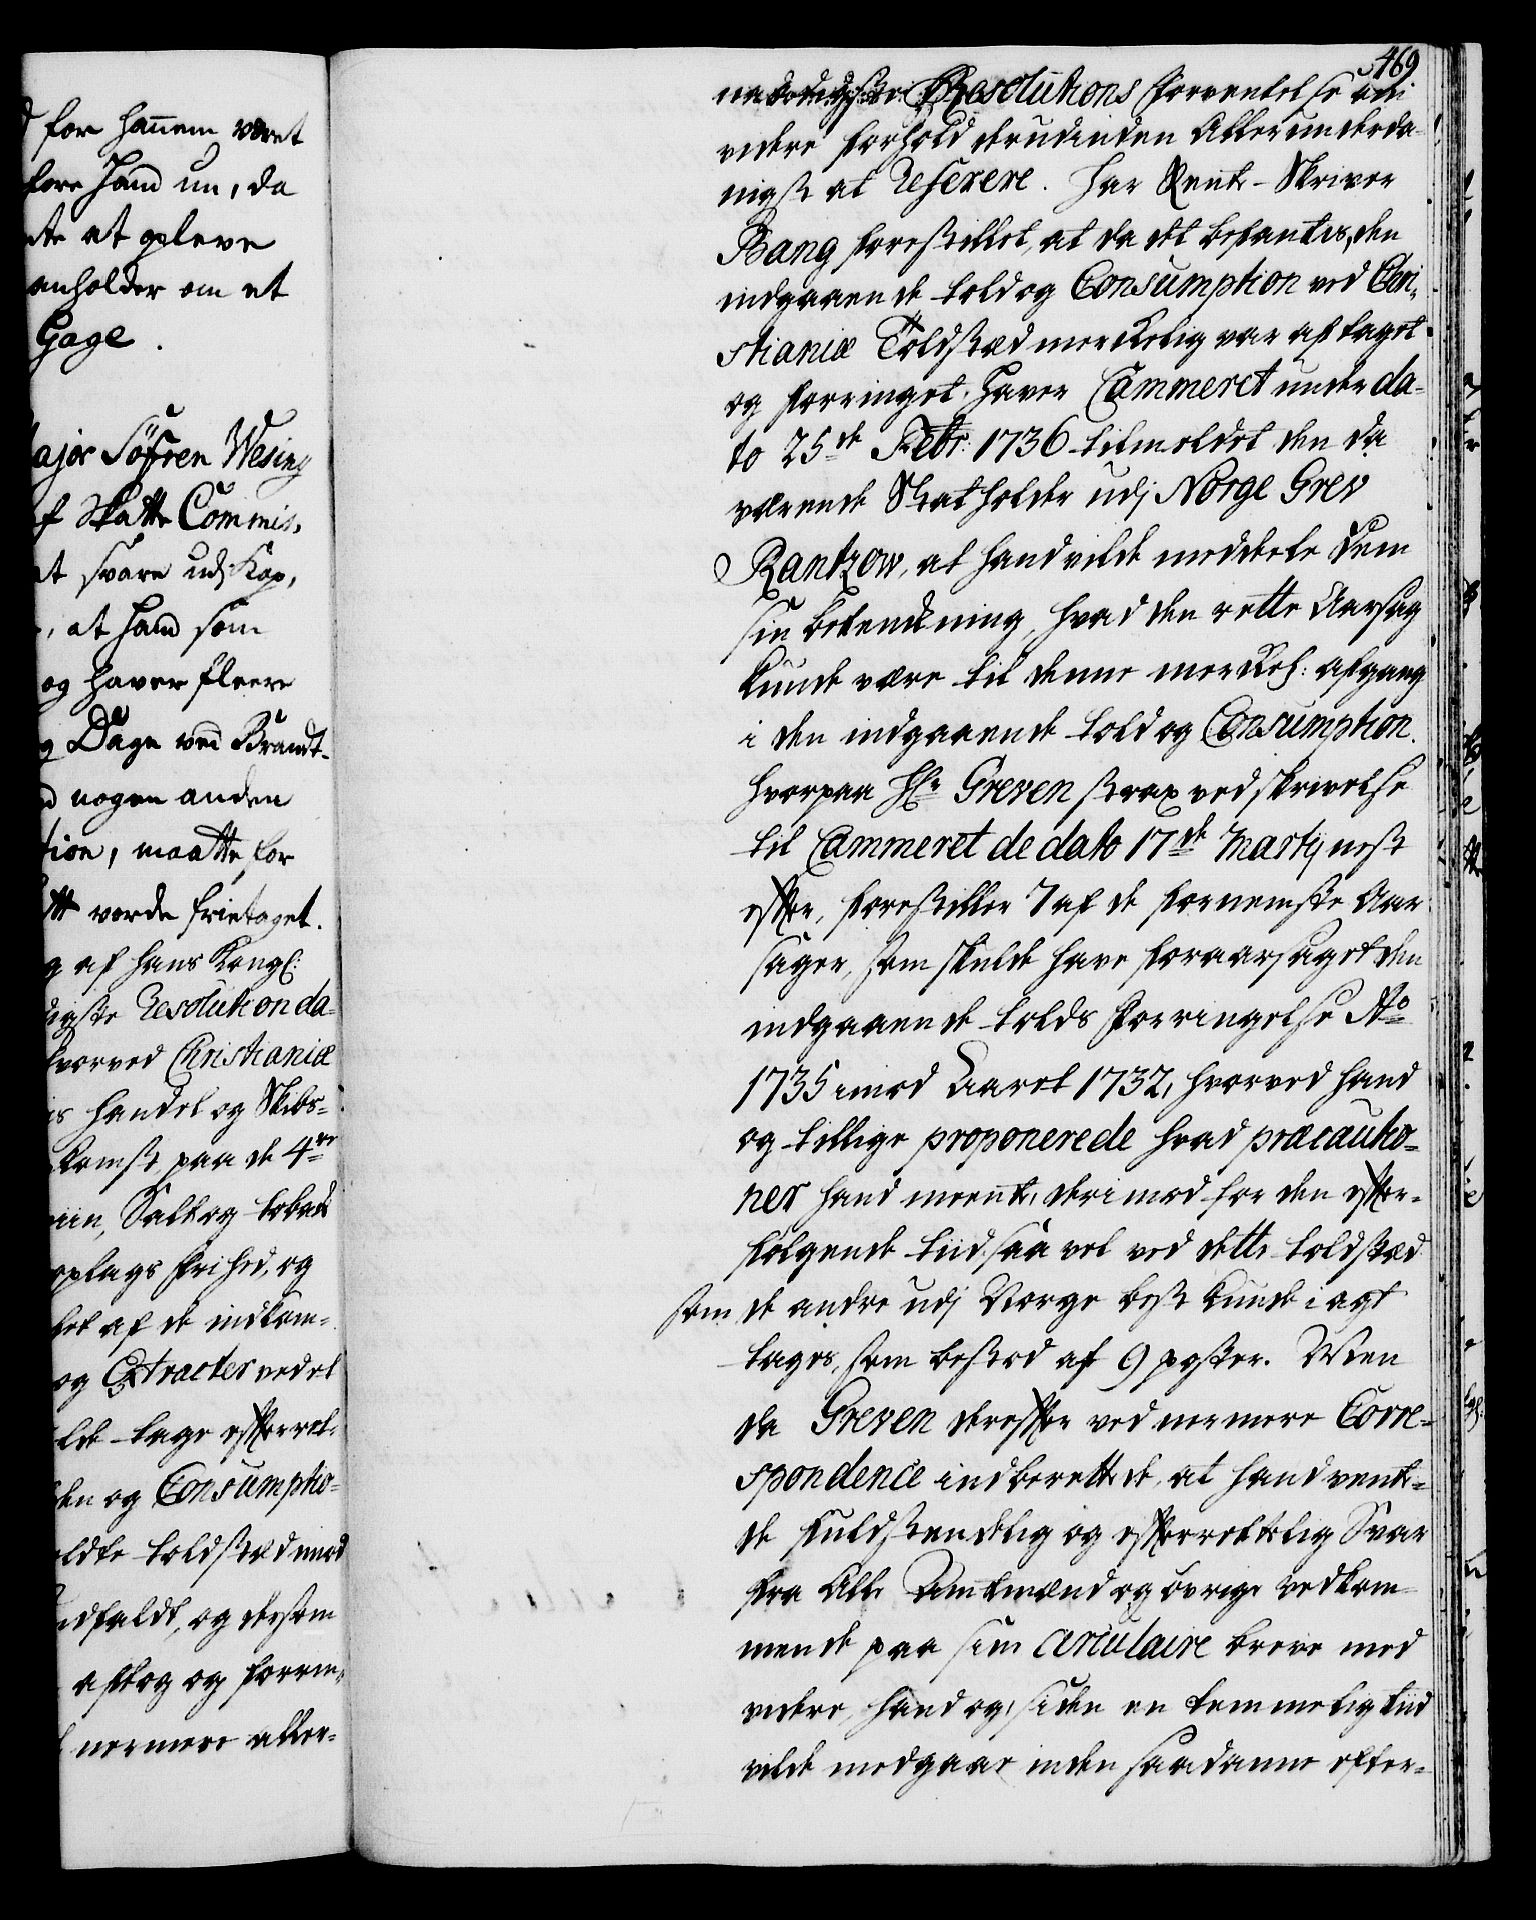 d for hannem været
fore Hand nu, da
te at opleve
anholder om et
Gage.
ajor Söfren Wesing
f Skatte Commis,
t svare udj Kop,
, at Hand som
og haver fleere
g Dage ved Brandt-
d nogen anden
tion, maatte for
tt vorde frietaget.
g af Hans Kongl:
digste Resolution da-
hvorved Christianiæ
is Handel og Skibs-
komst paa de 4re
iin, Salt og toback
oplags frihed, og
let af de indkom-
og Extracter vedel
lde tage efterret-
len og Consumptio-
ldte toldsted mod
indfaldt, og dersom
aftog og forrin-
nermere aller-
469
naadigste Resolutions forventelse om
videre forhold derudinden Allerunderda-
nigst at Referere. Har Rente-Skriver
Bang forestillet, at da det befantes, den
indgaaende told og Consumption ved Chri-
stianiæ Toldsted merckelig var aftaget
og forringet, haver Cammeret under da-
to 25de Febr: 1736 tilmeldet den da
værende Statholder udj Norge Grev
Rantzow, at hand vilde meddele dem
sin betenckning, hvad den rette Aarsag
kunde være til denne merckel: afgang
i den indgaaende told og Consumption.
hvorpaa Hr Greven strax ved skrivelse
til Cammeret de dato 17de Martij nest
efter, forestiller 7 af de fornemste Aar
sager, som skulde have foraarsaget den
indgaaende tolds forringelse Ao
1735 imod Aaret 1732, hvorved hand
og tillige proponerede hvad præcautio-
ner hand meente, derimod for den efter-
fölgende tiid saa vel ved dette toldsted
som de andre udj Norge best kunde i agt
tages, som bestod af 9 poster. Men
da Greven derefter ved nermere Corre-
spondence indberettede, at hand vente-
de fuldstendelig og efterrettelig Svar
fra Alle Amtmænd og övrige vedkom-
mende paa sin circulaire breve med
videre, hand og siden en temmelig tiid
vilde medgaae inden saadanne efter-